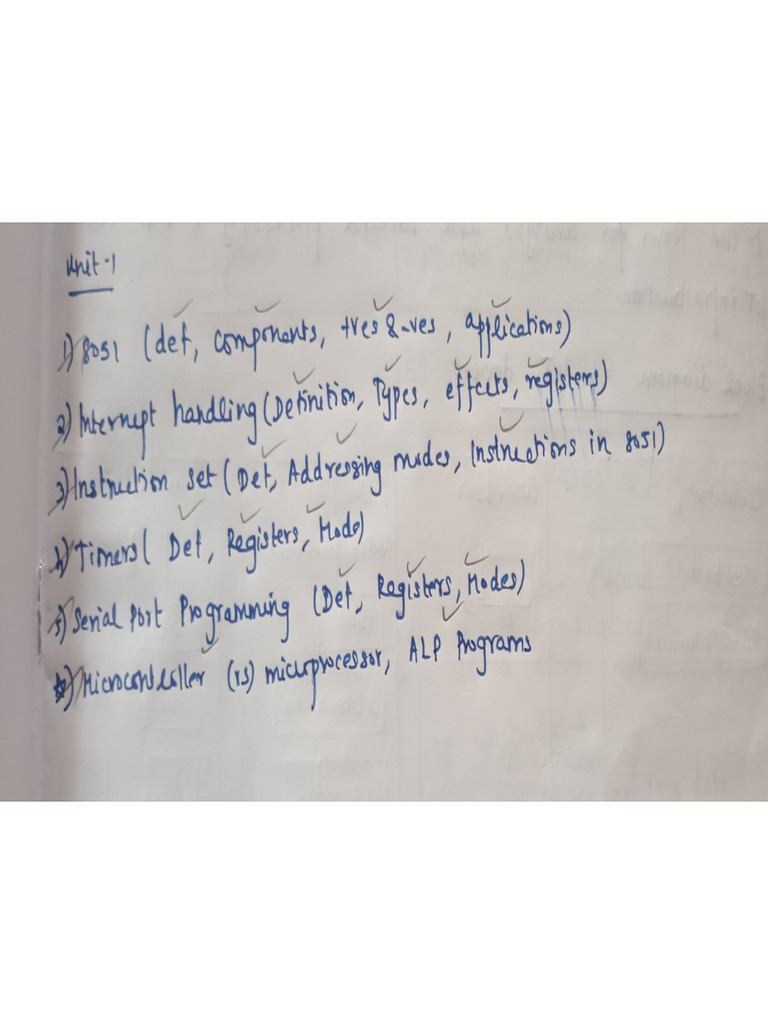 Unit-1
1) 8051 (def, components, +ves & -ves, applications)
2) Interrupt handling (Definition, Types, effects, registers)
3) Instruction set (Def, Addressing modes, Instructions in 8051)
4) Timers ( Def, Registers, Mode)
5) Serial Port Programming (Def, Registers, Modes)
Microcontroller (vs) microprocessor, ALP Programs